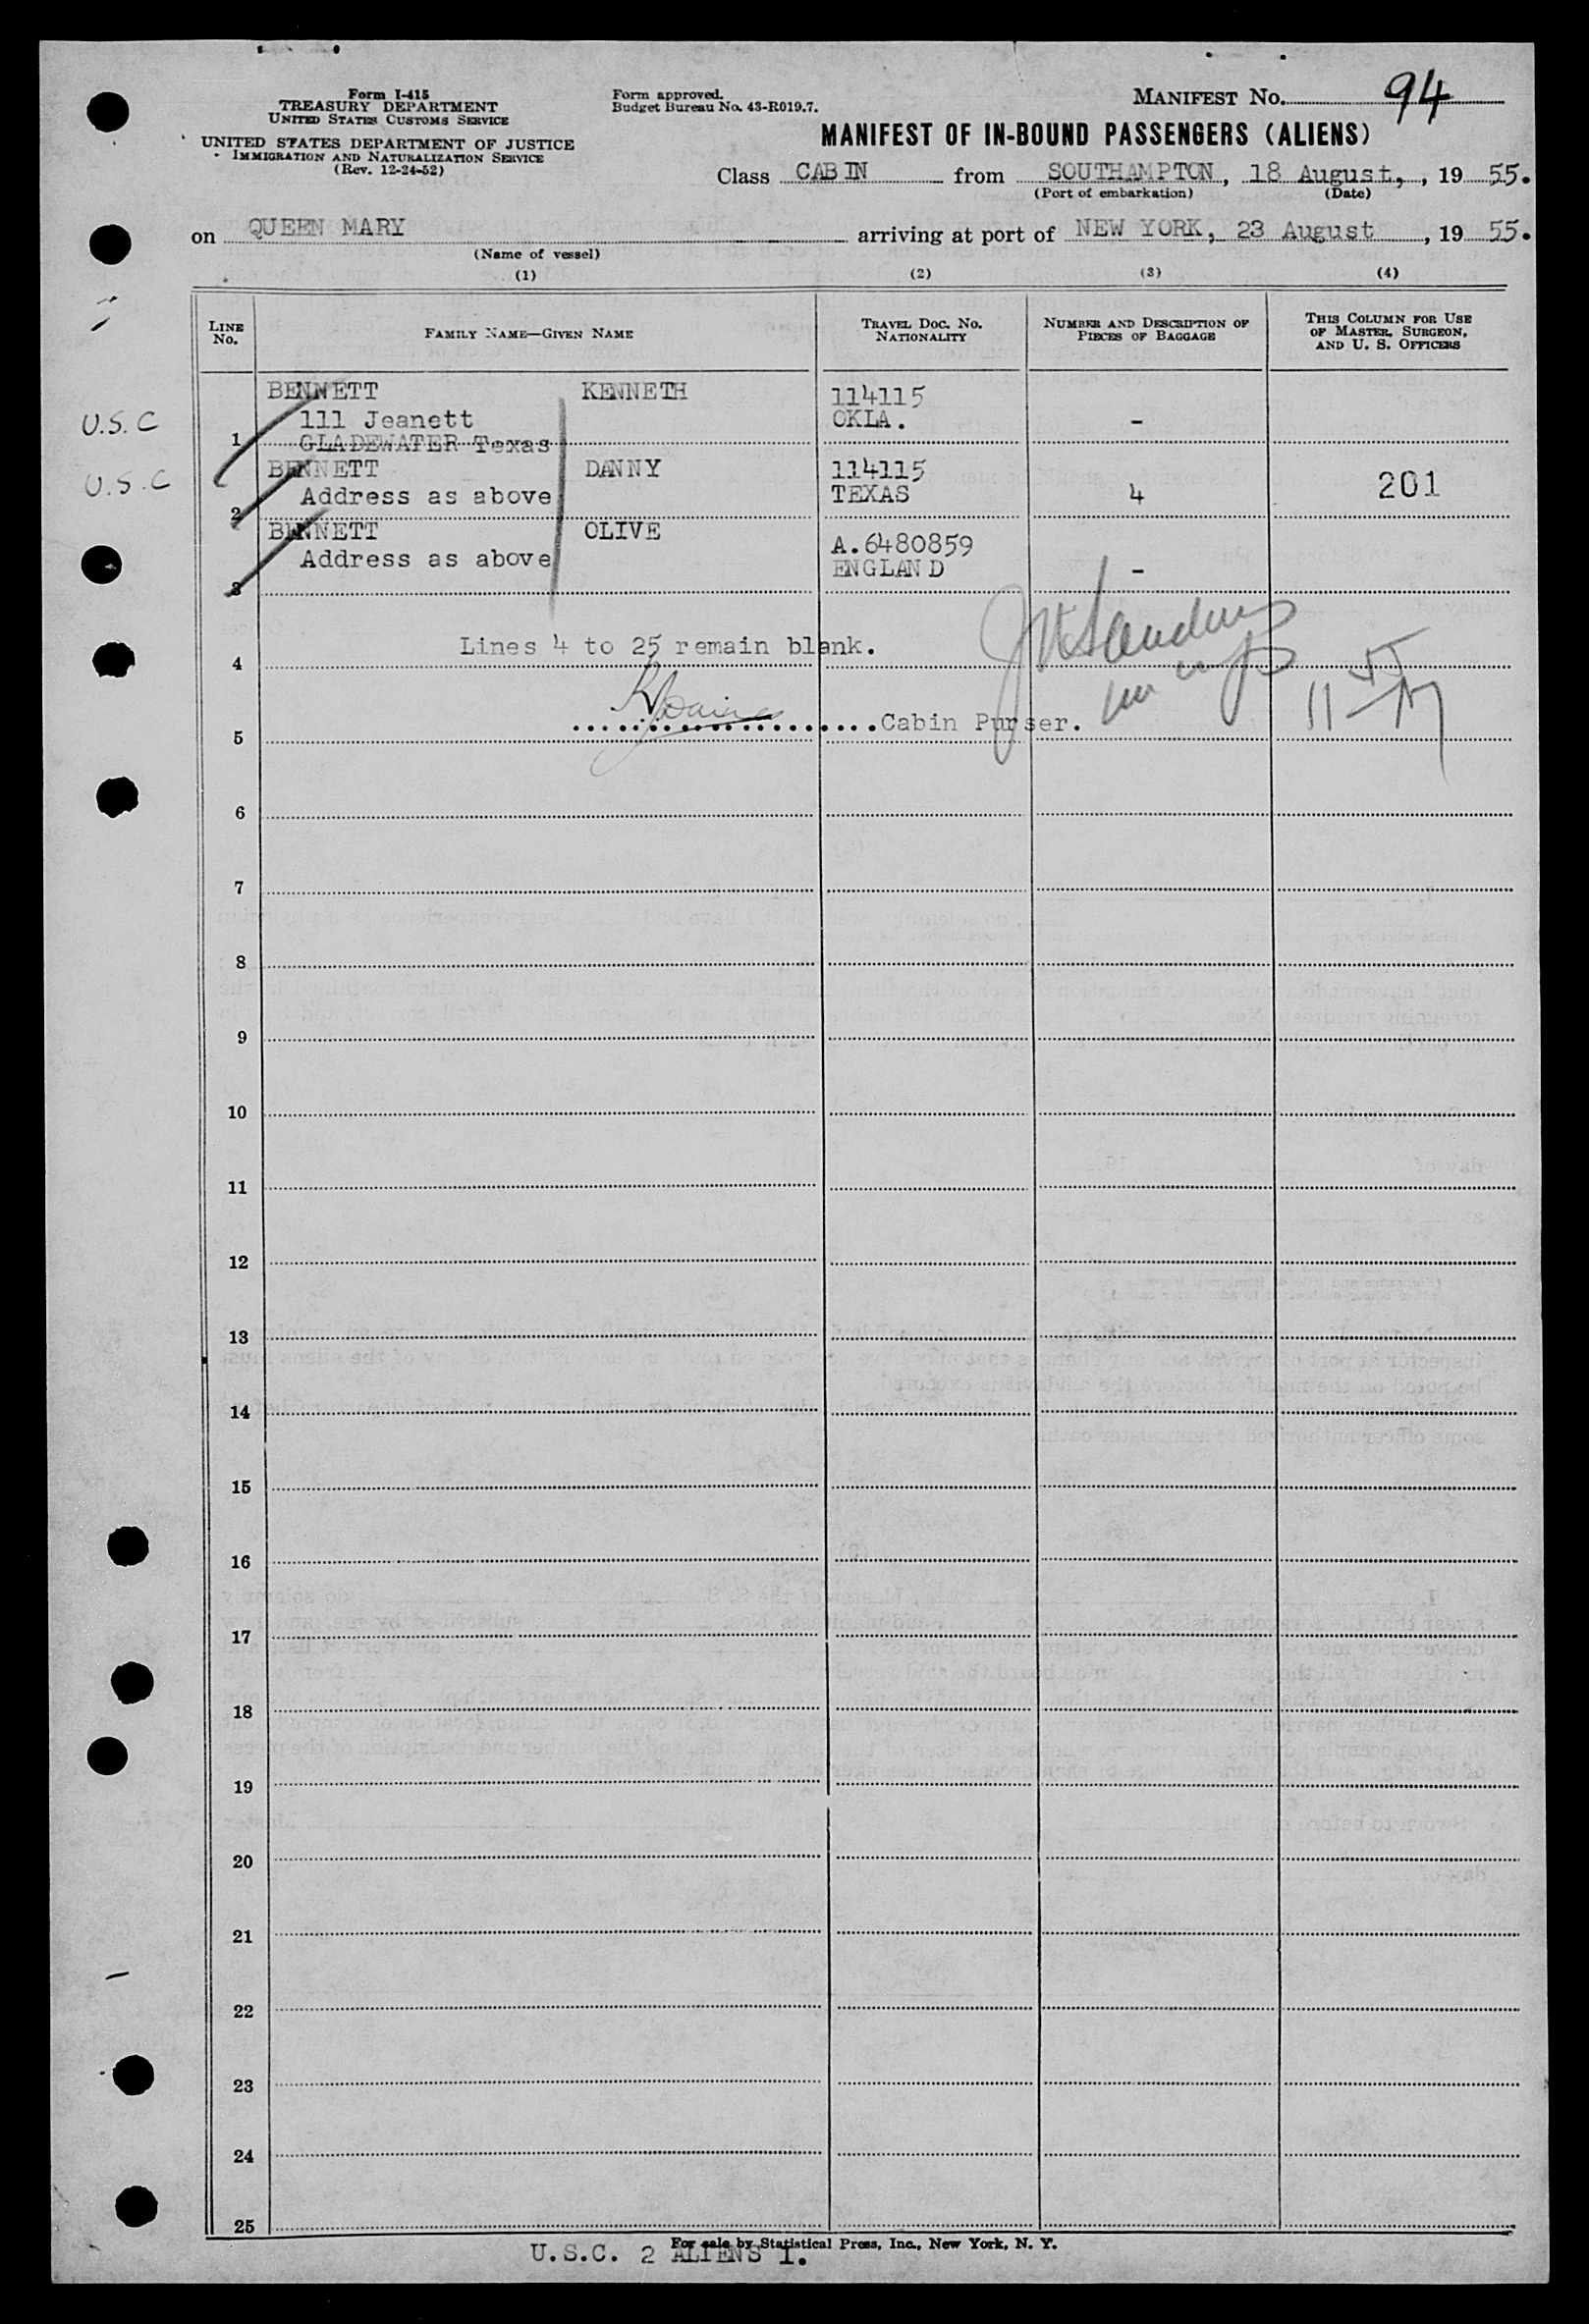 Form I-415
TREASURY DEPARTMENT
UNITED STATES CUSTOMS SERVICE
UNITED STATES DEPARTMENT OF JUSTICE
IMMIGRATION AND NATURALIZATION SERVICE
(Rev. 12-24-52)
Form approved.
Budget Bureau No. 43-R019.7.
MANIFEST No. 94
MANIFEST OF IN-BOUND PASSENGERS (ALIENS)
Class CABIN from SOUTHAMPTON, 18 August, , 19 55.
(Port of embarkation) (Date)
on QUEEN MARY arriving at port of NEW YORK, 23 August , 19 55.
(Name of vessel)
(1) (2) (3) (4)
LINE No. FAMILY NAME—GIVEN NAME TRAVEL DOC. No. NATIONALITY NUMBER AND DESCRIPTION OF PIECES OF BAGGAGE THIS COLUMN FOR USE OF MASTER, SURGEON, AND U. S. OFFICERS
BENNETT KENNETH 114115
U.S.C 111 Jeanett OKLA. -
1 GLADEWATER Texas
BENNETT DANNY 114115
U.S.C Address as above TEXAS 4 201
2
BENNETT OLIVE A.6480859
Address as above ENGLAND -
3
Lines 4 to 25 remain blank.
4
Cabin Purser.
5
6
7
8
9
10
11
12
13
14
15
16
17
18
19
20
21
22
23
24
25
For sale by Statistical Press, Inc., New York, N. Y.
U.S.C. 2 ALIENS 1.